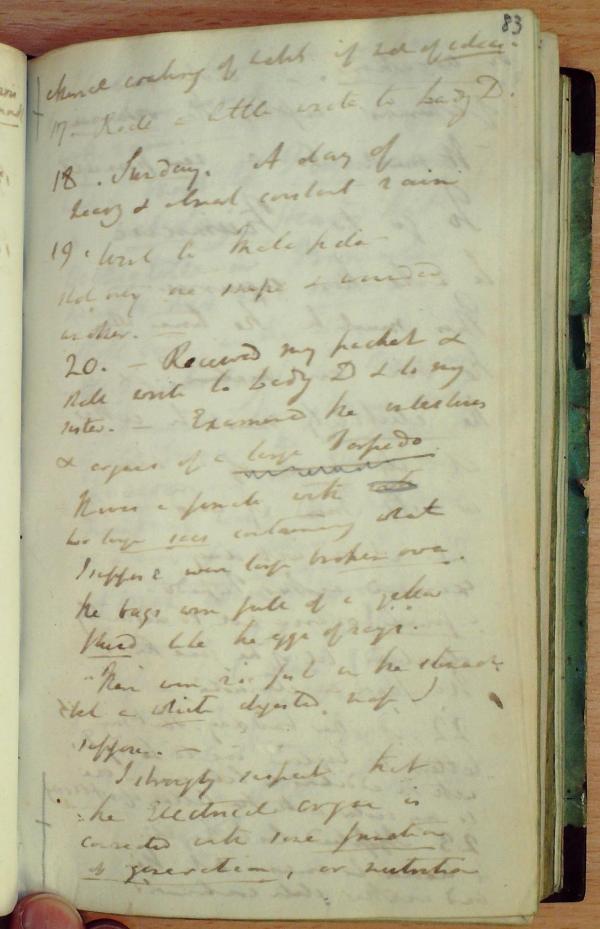 83
of
17. Rode a little wrote to Lady D.
18. Sunday. A day of
heavy & almost constant rain
19. Went to
shot only one snipe & wounded
another.
20. – Received my packet &
rode wrote to Lady D & to my
sister. – Examined the intestines
& organs of a large Torpedo
It was a female with
two large sacs containing what
I suppose were large broken ova.
The bags were full of a yellow
fluid like the eggs of rays.
There was no fish in the stomach
but a white digested
suppose. –
I strongly suspect that
the Electrical organ is
connected with some function
of generation, or nutrition